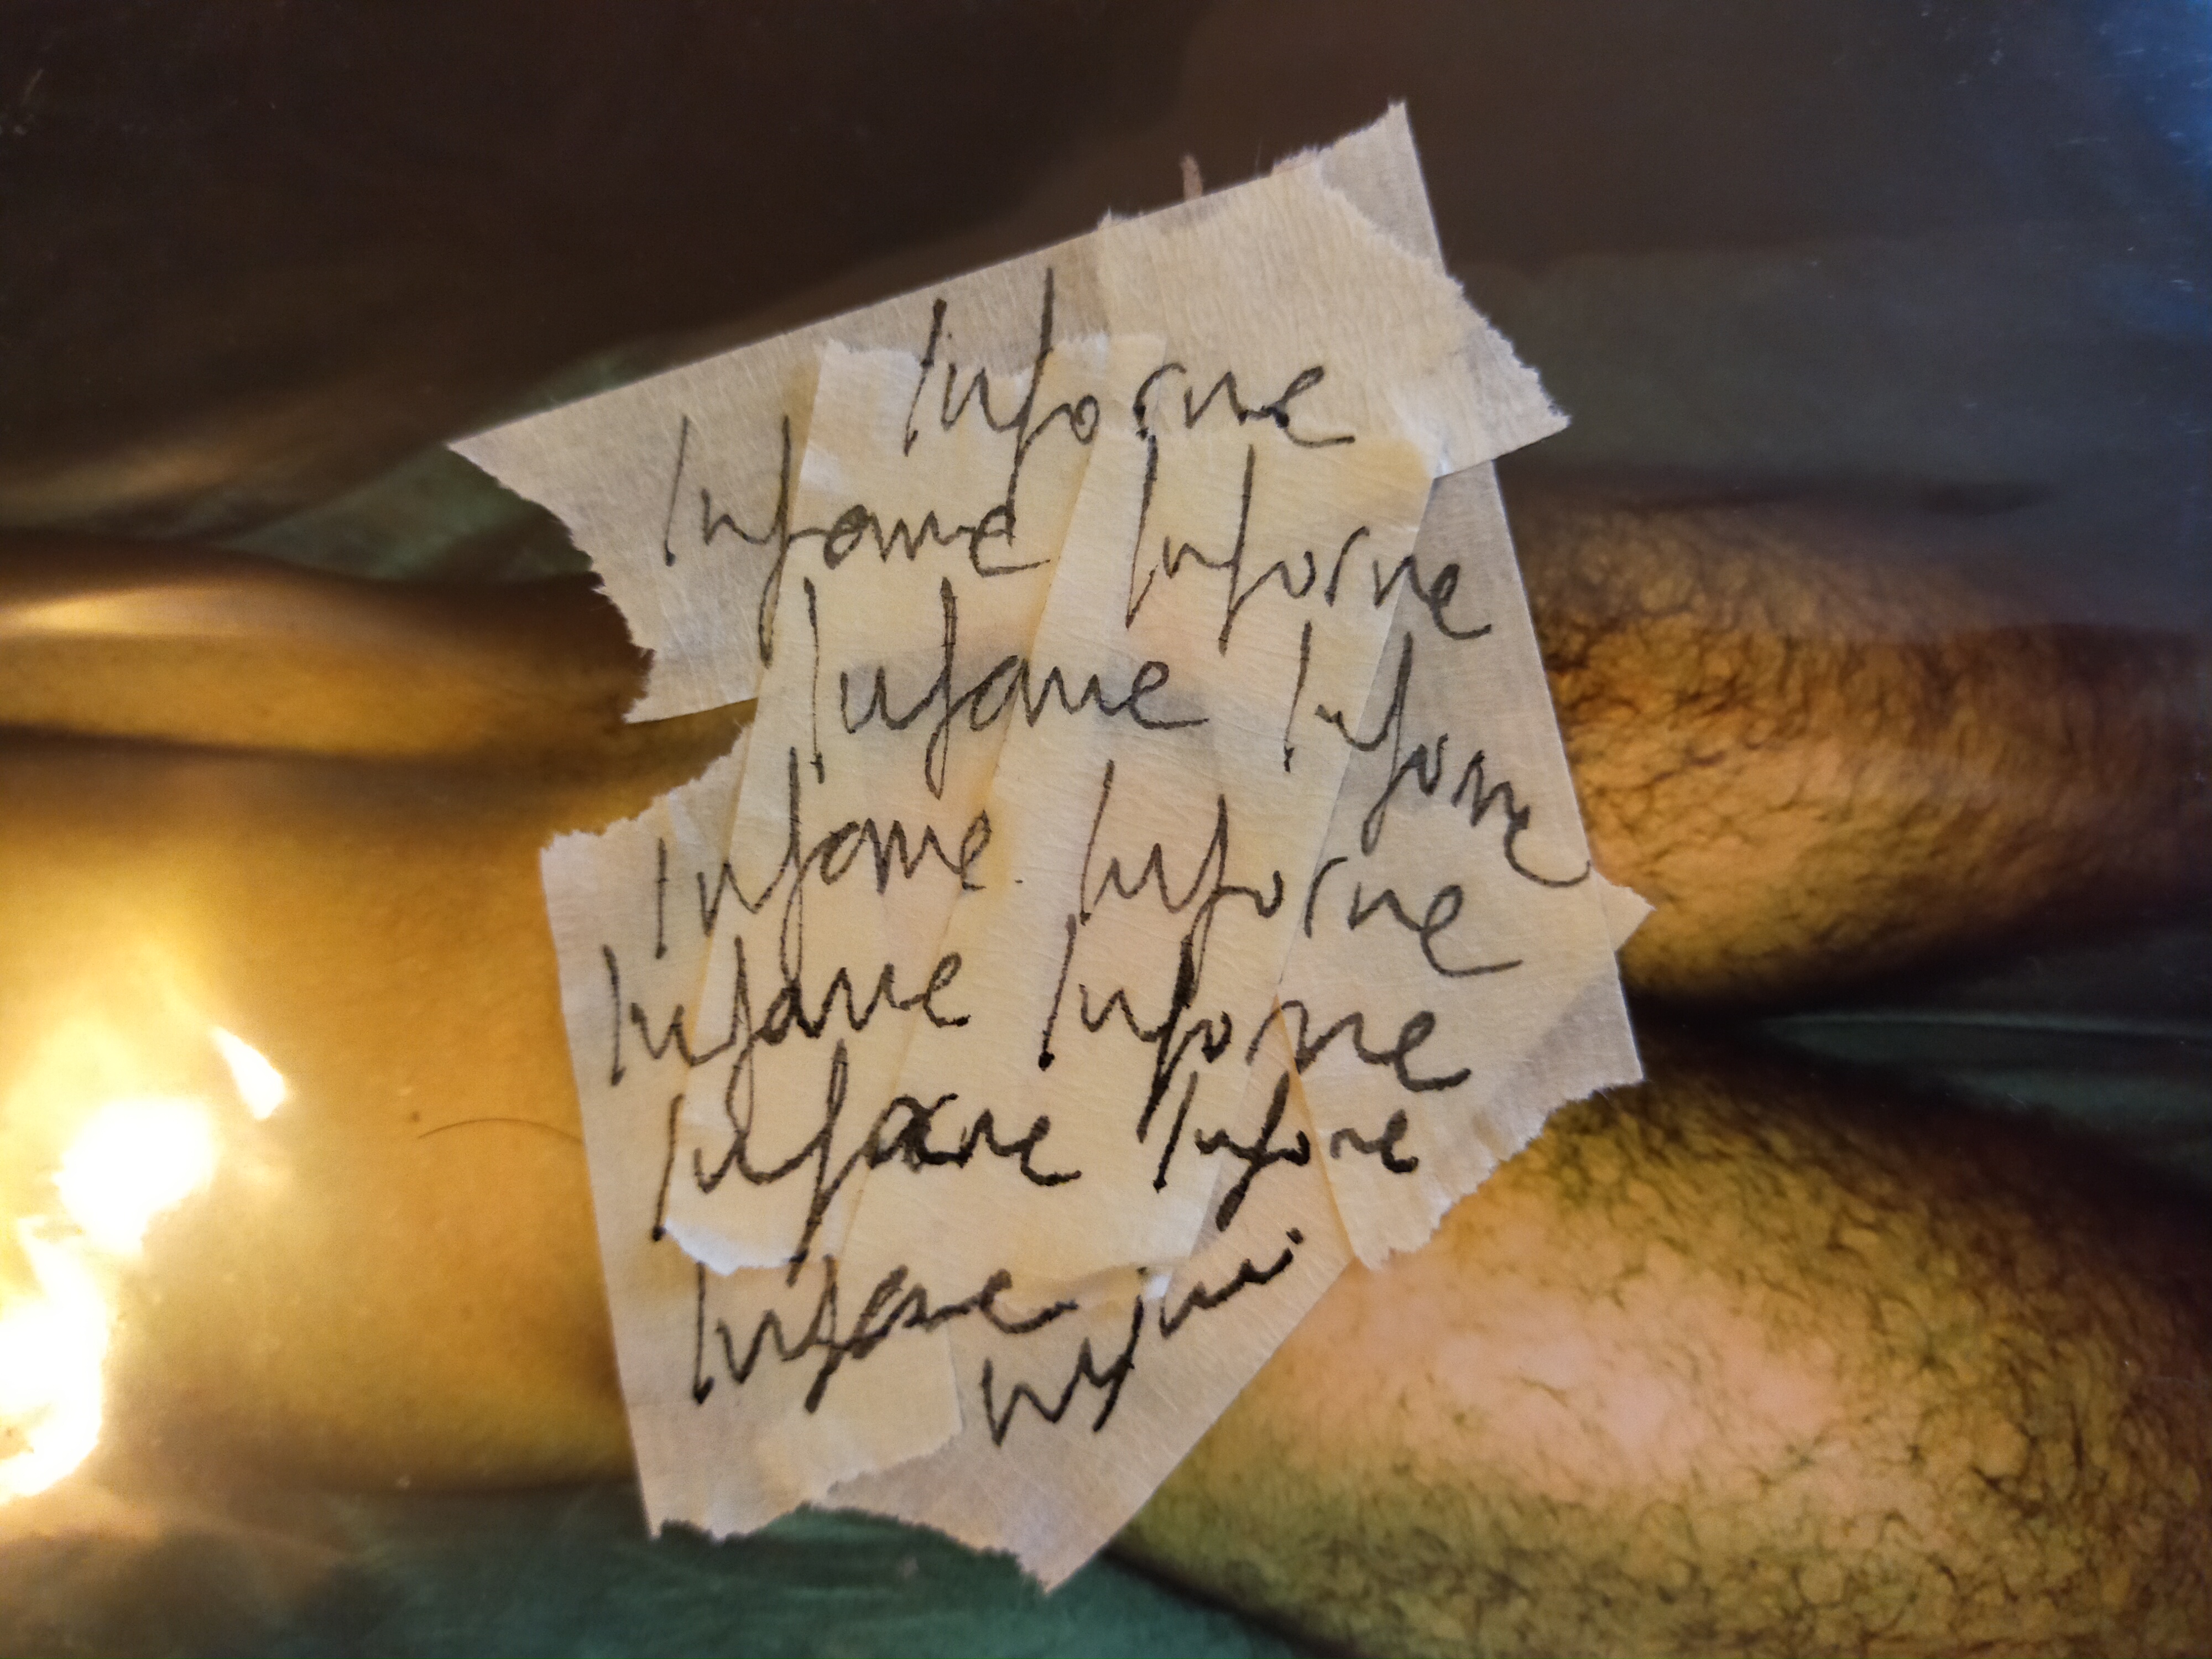 Informe
Infame Informe
Infame Informe
Infame Informe
Infame Informe
Infame Informe
Infame